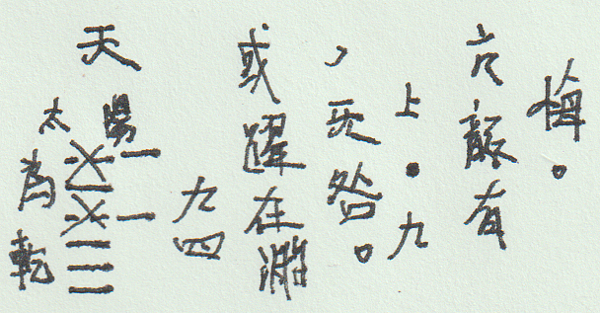 天
太陽
為乾
九四
或躍在淵
，无咎。
上·九
亢龍有
悔。